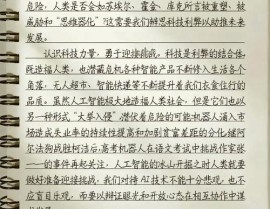 危险，人类是否会如苏埃尔、霍金、库克所言被重塑、被
威胁和“思维器化”？这需要我们辩思科技利弊以助推未来
发展。
认识科技力量，勇于迎接挑战。科技是利弊的结合体，
既造福人类，也潜藏危机各种智能产品不断倖入生活各个
角落，无人超市、智能快递等不断提升着我们衣食住行的
品质。虽然人工智能极大地造福人类社会，但是它们也以
另一种形式“大举入侵”潜伏着危险的可能：机器人涌入市
场造成失业率的持续性提高和加剧贫富差距的分化，继阿
尔法狗战胜柯洁后，高考机器人在语文考试中挑战作家张
一一的事件再起关注，人工智能的冰山开掘之时人类就要
做好准备迎接挑战，我们对待AI技术不能十分悲观，也不
应盲目乐观，而要以辩证眼光和开放心态在相互协作中谋